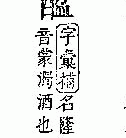 字彙補名隆
音蒙濁酒也